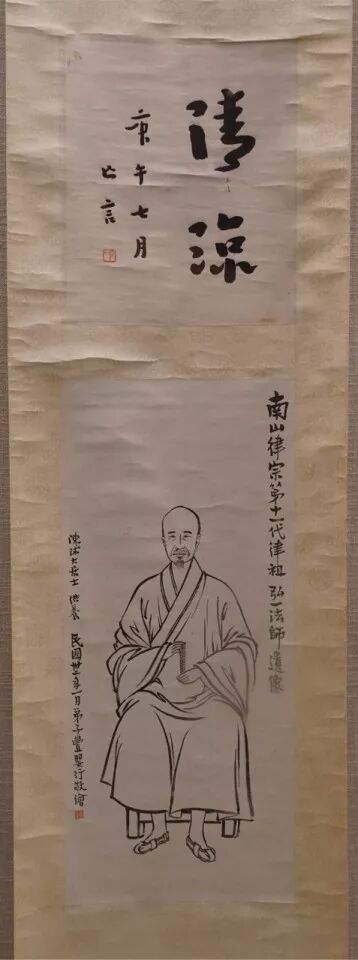 清涼
庚午七月
亡言
南山律宗第十一代律祖 弘一法師遺像
大居士 供養 民國卅二年一月弟子豐嬰行敬繪